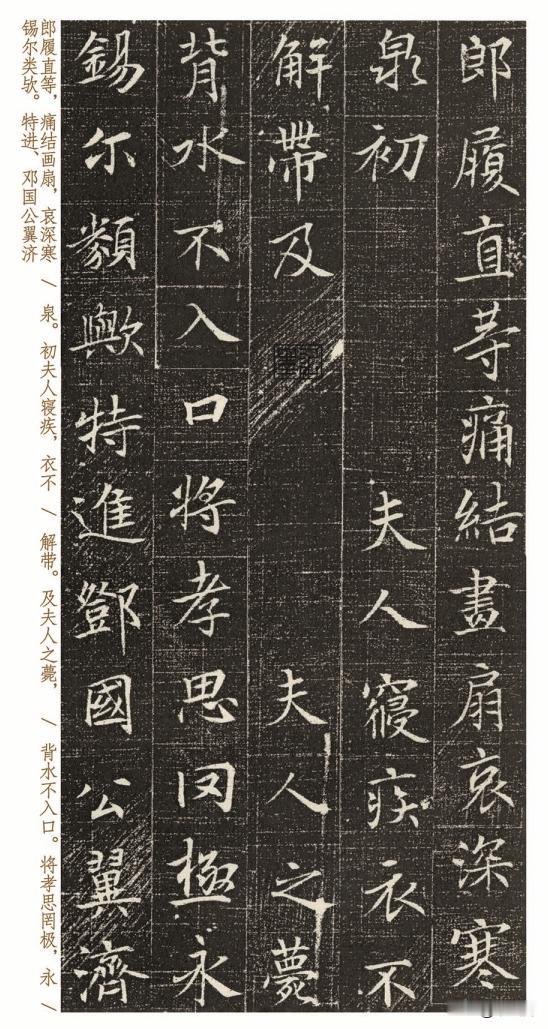 郎履直等痛結畫扇哀深寒
泉初 夫人寢疾衣不
解帶及 夫人之薨
背水不入口將孝思罔極永
錫尒類歟特進鄧國公翼濟
郎履直等，痛结画扇，哀深寒 / 泉。初夫人寝疾，衣不 / 解带。及夫人之薨， / 背水不入口。将孝思罔极，永 /
锡尔类欤。特进、邓国公翼济